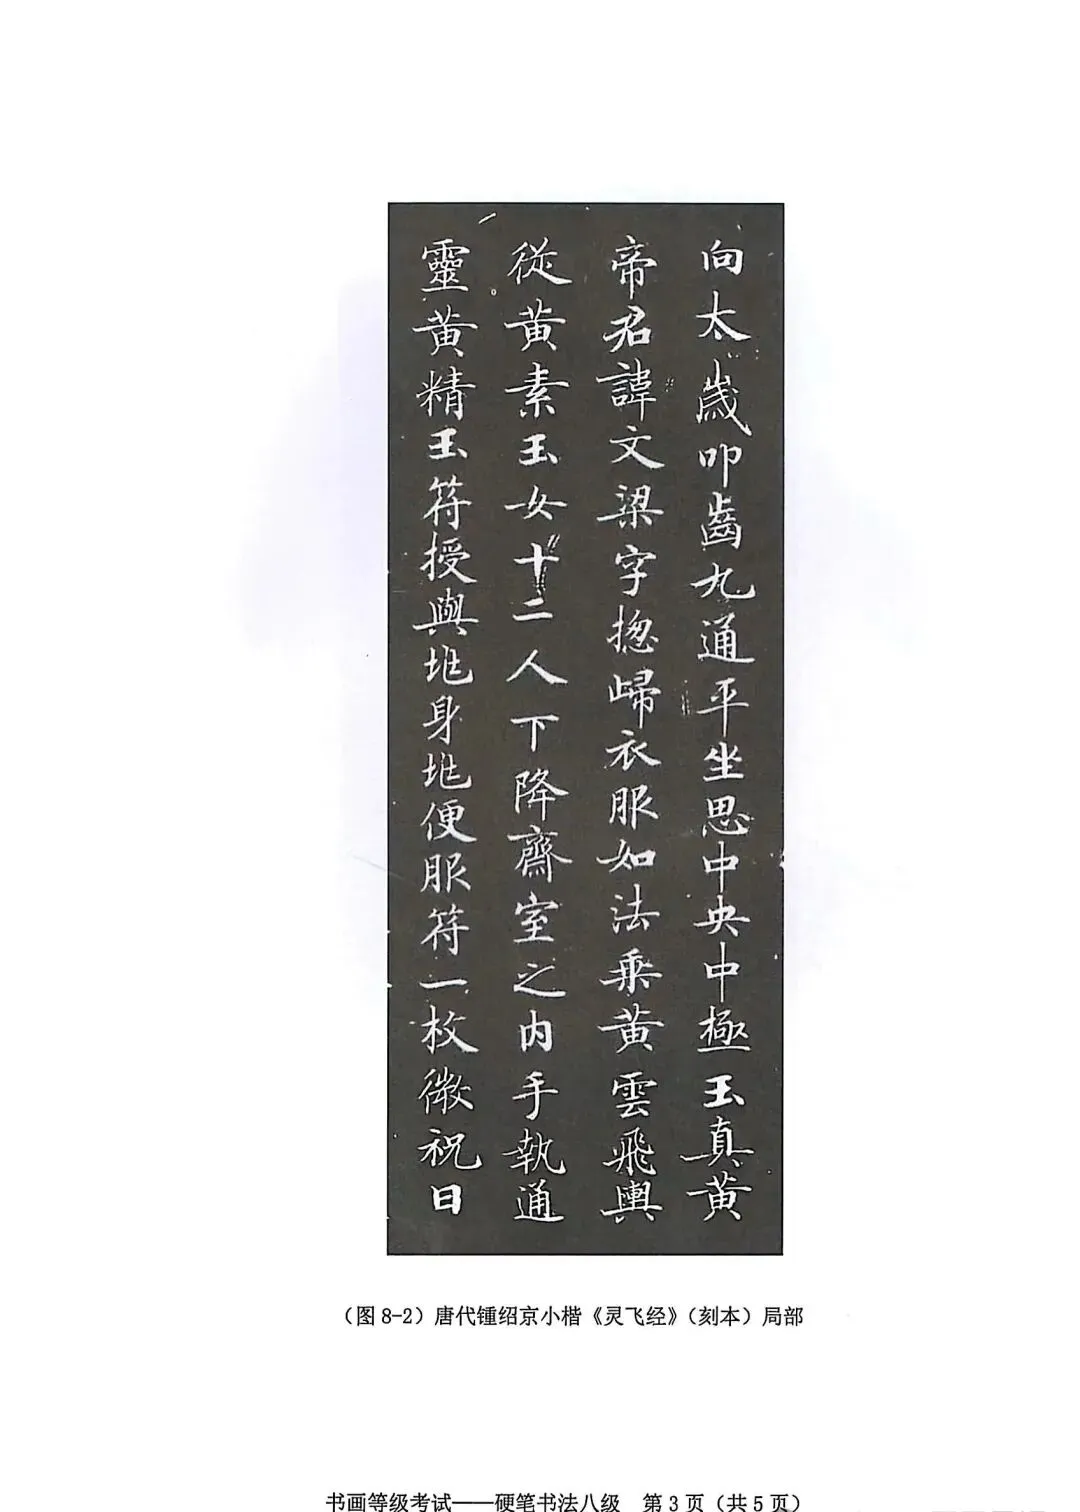 向太歲叩齒九通平坐思中央中極玉真黃
帝君諱文梁字揔歸衣服如法乘黃雲飛輿
從黃素玉女十二人下降齋室之內手執通
靈黃精玉符授與兆身兆便服符一枚微祝曰
（图 8-2）唐代锺绍京小楷《灵飞经》（刻本）局部
书画等级考试——硬笔书法八级 第 3 页（共 5 页）